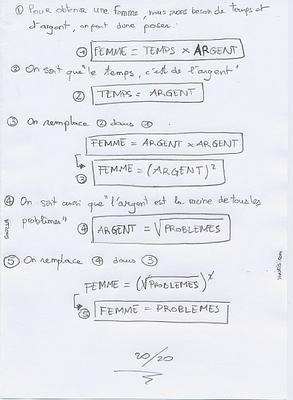 ① Pour obtenir une femme, nous avons besoin de temps et
d'argent, on peut donc poser :
① FEMME = TEMPS × ARGENT
② On sait que "le temps, c'est de l'argent"
② TEMPS = ARGENT
③ On remplace ② dans ①.
FEMME = ARGENT × ARGENT
③ FEMME = (ARGENT)²
④ On sait aussi que "l'argent est la racine de tous les
problèmes"
④ ARGENT = √PROBLEMES
⑤ On remplace ④ dans ③
FEMME = (√PROBLEMES)²
⑤ FEMME = PROBLEMES
20/20